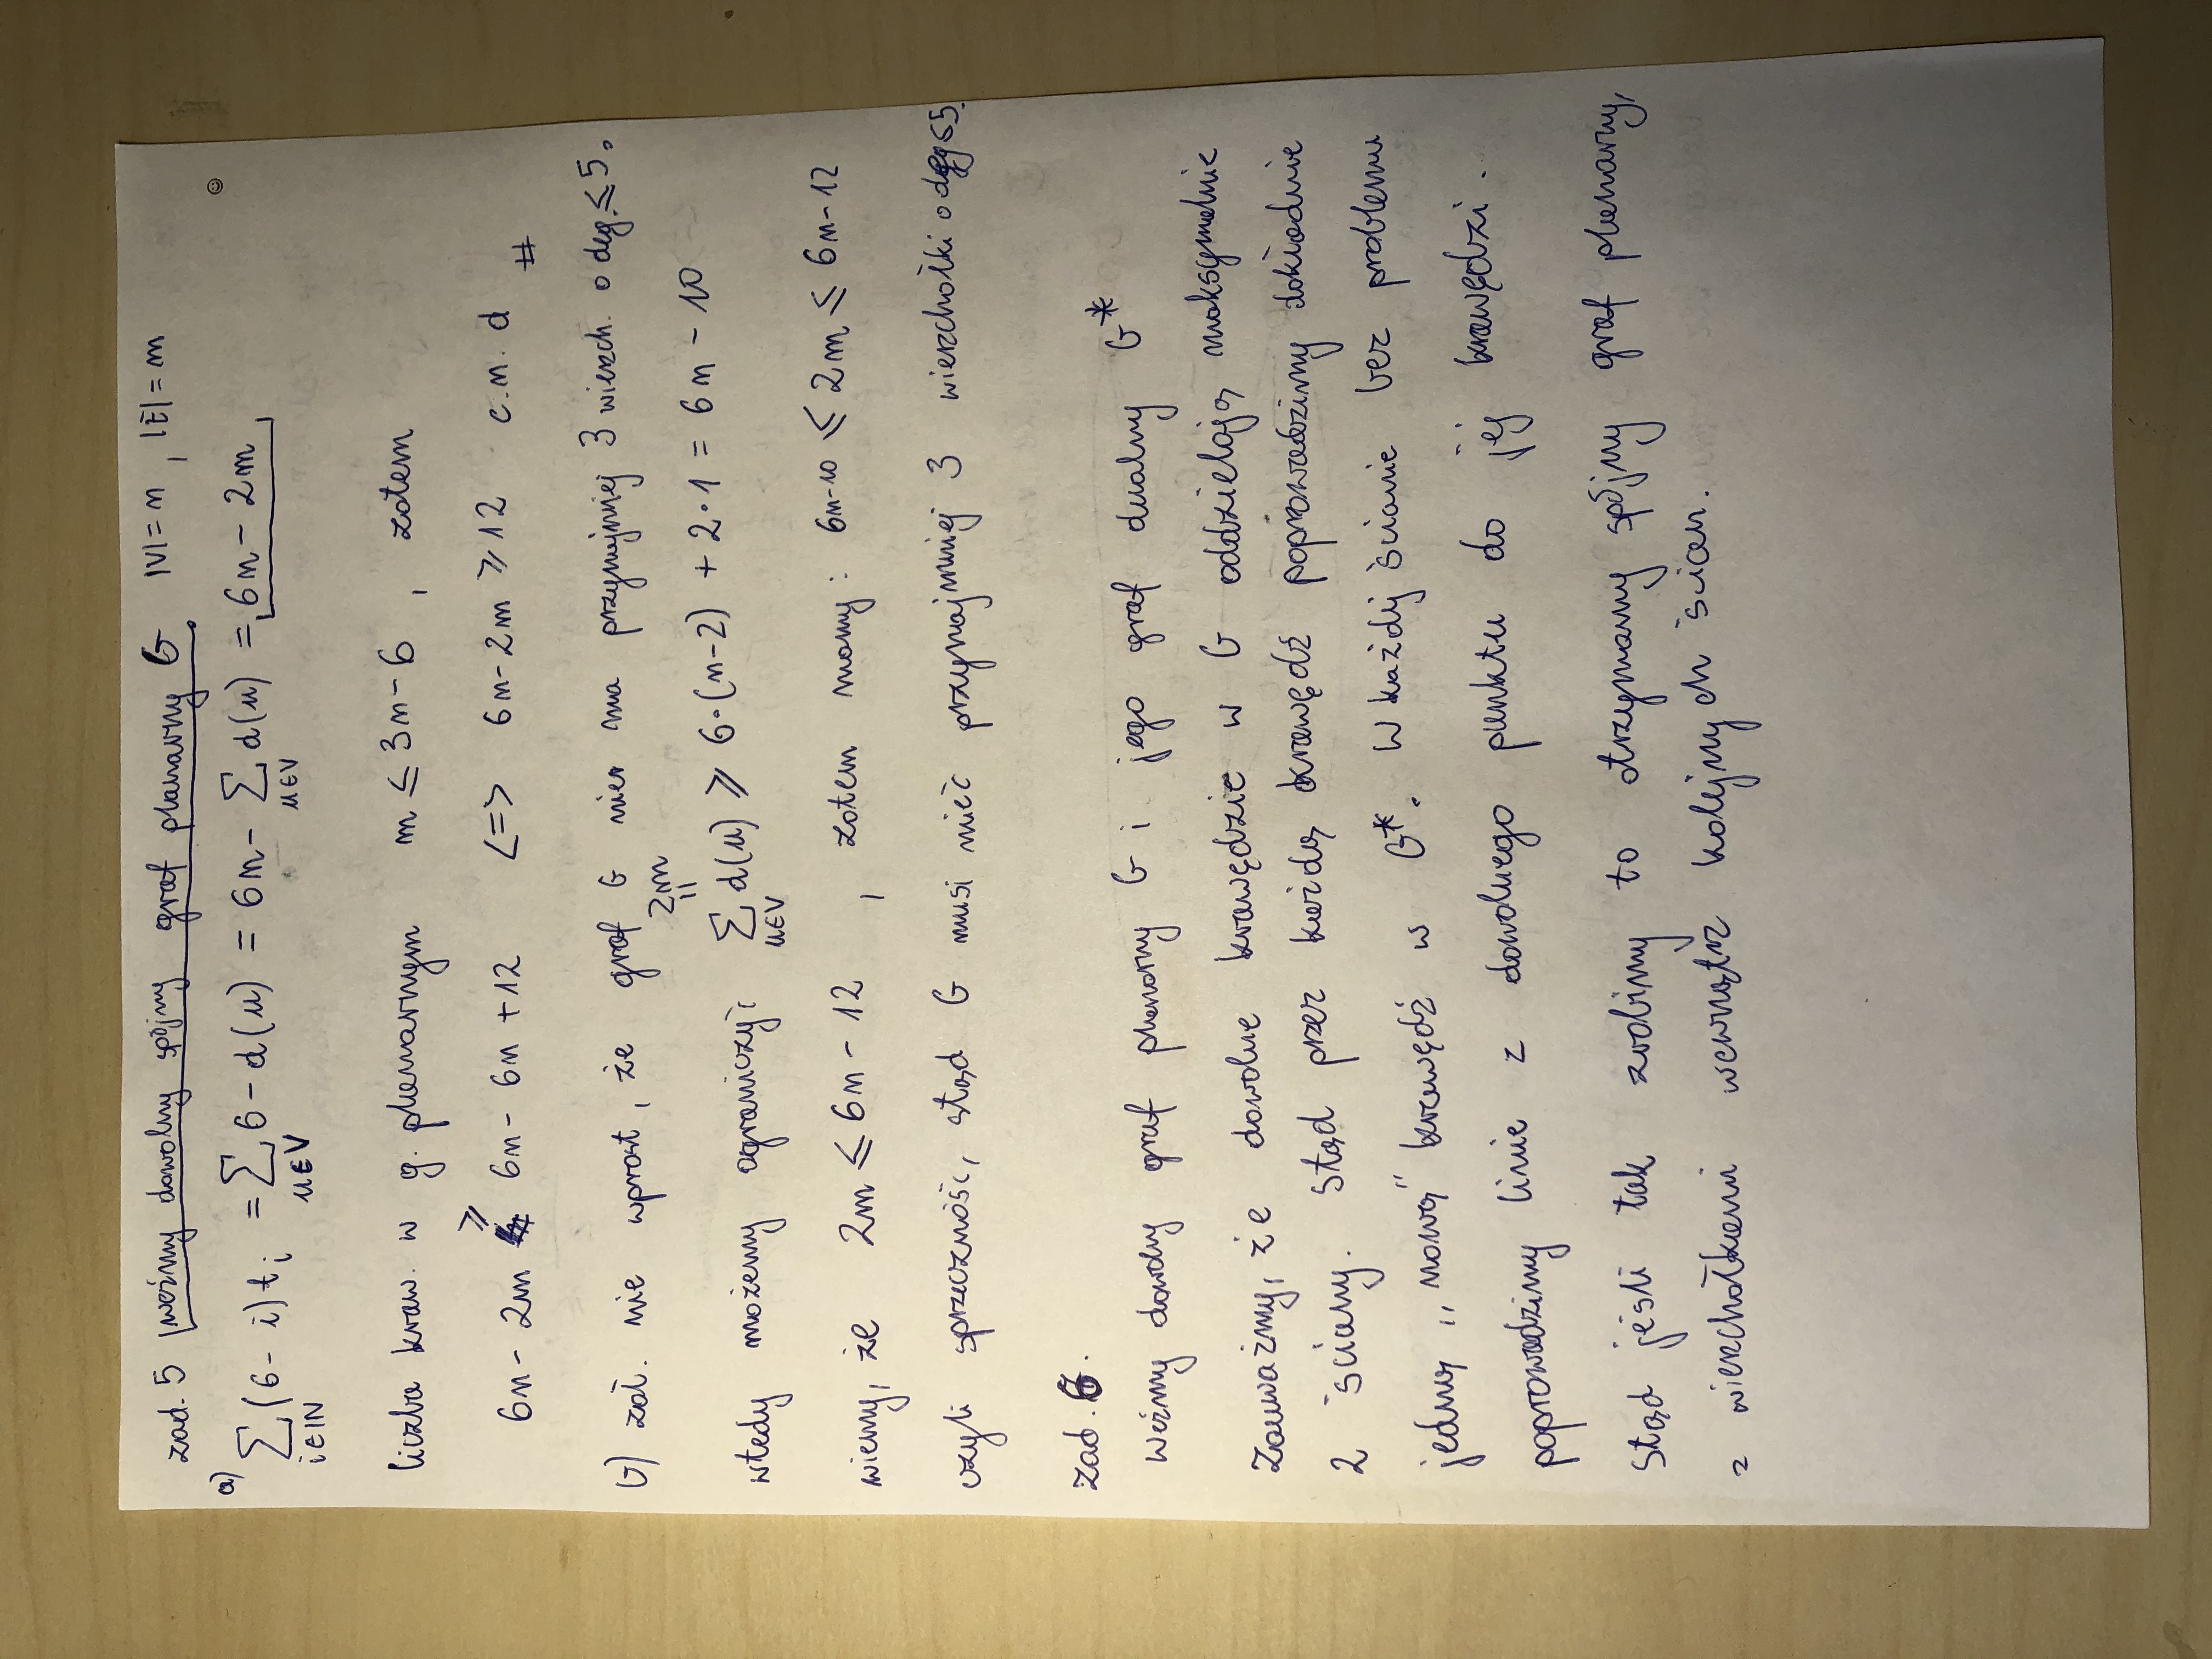 zad. 5 weźmy dowolny spójny graf planarny G. |V| = n , |E| = m
a)
∑(6 - i) t_i = ∑ 6 - d(u) = 6n - ∑ d(u) = 6n - 2m
i∈ℕ u∈V u∈V
☺
liczba kraw. w g. planarnym m ≤ 3n - 6 , zatem
6n - 2m ≥ 6n - 6n + 12 <=> 6n - 2m ≥ 12 c.n.d #
b) zał. nie wprost, że graf G nie ma przynajmniej 3 wierzch. o deg. ≤ 5.
2m
=
wtedy możemy ograniczyć ∑ d(u) ≥ 6·(n-2) + 2·1 = 6n - 10
u∈V
wiemy, że 2m ≤ 6n - 12 , zatem mamy: 6n-10 ≤ 2m ≤ 6n-12
czyli sprzeczność, stąd G musi mieć przynajmniej 3 wierzchołki o deg ≤ 5.
zad. 6.
Weźmy dowolny graf planarny G i jego graf dualny G*
Zauważmy, że dowolne krawędzie w G oddzielają maksymalnie
2 ściany. Stąd przez każdą krawędź poprowadzimy dokładnie
jedną „nową" krawędź w G*. W każdej ścianie bez problemu
poprowadzimy linie z dowolnego punktu do jej krawędzi.
Stąd jeśli tak zrobimy to otrzymamy spójny graf planarny,
z wierzchołkami wewnątrz kolejnych ścian.